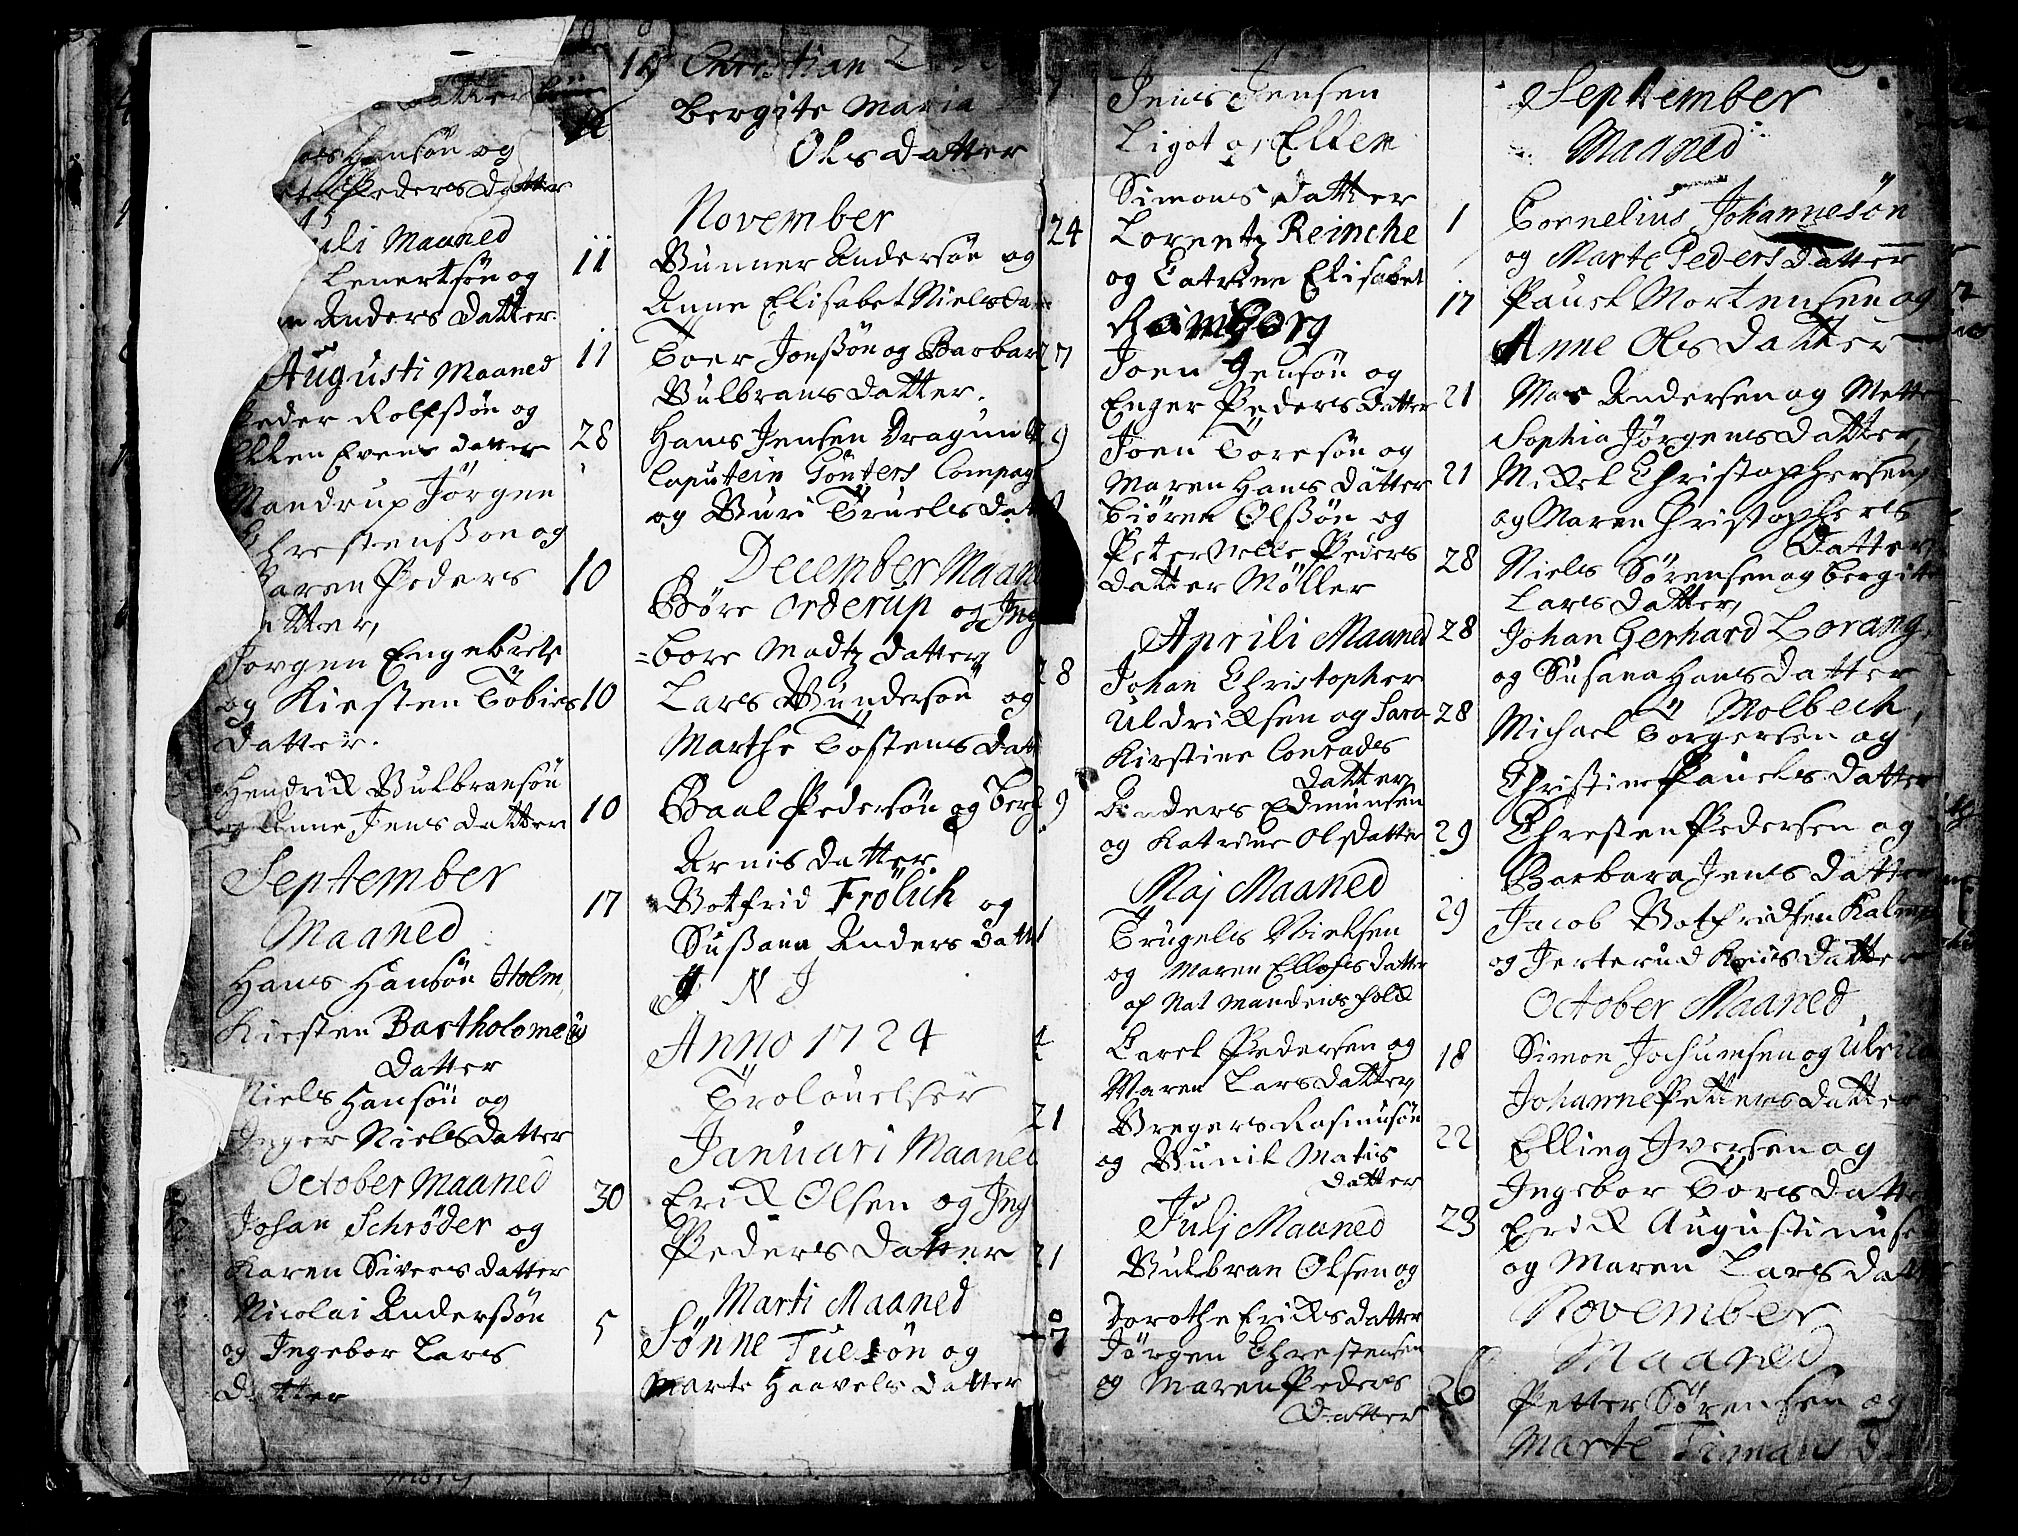 Datter
Hansøn og
Peders Datter
Juli Maaned
Lenertsøn og
Anders Datter
Augusti Maaned
Peder Rolfsøn og
Ellen Evens datter
Mandrup Jörgen
Chrestensøn og
Karen Peders
Datter,
Jorgen Engebrets
og Kirsten Tobies
Datter.
Hendrik Gulbransøn
og Anne Jens datter
September
Maaned
Hans Hansøn Holm
Kirsten Bartholomeüs
Datter
Niels Hansøn og
Inger Niels datter
October Maaned
Johan Schrøder og
Karen Sivers datter
Nicolai Anderssøn
og Ingebor Lars
Datter
19 Christian
Bergite Maria
Ols datter
November
11 Gunner Andersøn og
Anne Elisabet Niels da
11 Toer Jonssøn og Barbar
Gulbrans datter.
28 Hans Jensen Dragun
Capitein Gönters Compag
og Guri Truels dat
December Maan
10 Børe Orderup og Ing
=bore Madtz datter
10 Lars Gundersøn og
Marthe Tostens dat
10 Paal Pedersøn og Ber
Arnis datter
17 Gotfrid Frölich og
Sussana Anders datt
I N J
Anno 1724
Trolouelser
Januari Maaned
30 Erik Olsen og Ing
Peders datter
Marti Maaned
5 Sønne Tuesøn og
Marte Haavels datter
Jens Jensen
Ligot og Ellen
Simons datter
24 Lorentz Reinche
og Catrine Elisabet
Reimborg
27 Joen Jensøn og
Enger Peders datter
29 Joen Toresøn og
Maren Hans datter
Biören Olssøn og
Peternelle Peders
datter Møller
Aprili Maaned
28 Johan Christopher
Uldriksen og Sara
Kirstine Conrads
datter
9 Anders Edmunsen
og Katrine Olsdatter
Maj Maaned
1 Trugels Nielsen
og Maren Ellofs datter
af Nat mandens folk
4 Carel Pedersen og
Maren Lars datter
21 Gregers Rasmusøn
og Gunil Matis
datter
Julj Maaned
21 Gulbran Olsen og
Dorothe Eriks datter
7 Jörgen Chrestensen
og Maren Peders
Datter
September
Maaned
1 Cornelius Johannesøn
og Marte Peders datter
17 Pauel Mortensen og
Anne Ols datter
21 Mas Andersen og Mette
Sophia Jørgens datter,
21 Mikkel Christophersen
og Maren Christophers
Datter
28 Niels Sørensen og Bergite
Lars datter,
28 Johan Gerhard Lorang
og Susana Hans datter
28 Michael Torgersen Molbech,
og
Christine Pauels datter
29 Chresten Pedersen og
Barbara Jens datter
29 Jacob Gotfridsen Kalm
og Jerterud Knus datter
October Maaned
18 Simon Jochumsen og Ulrica
Johanne Petters datter
22 Elling Iversen og
Ingebor Tors datt
23 Erik Augustinuse
og Maren Lars dat
November
Maaned
26 Petter Sørensen og
Marte Timans da